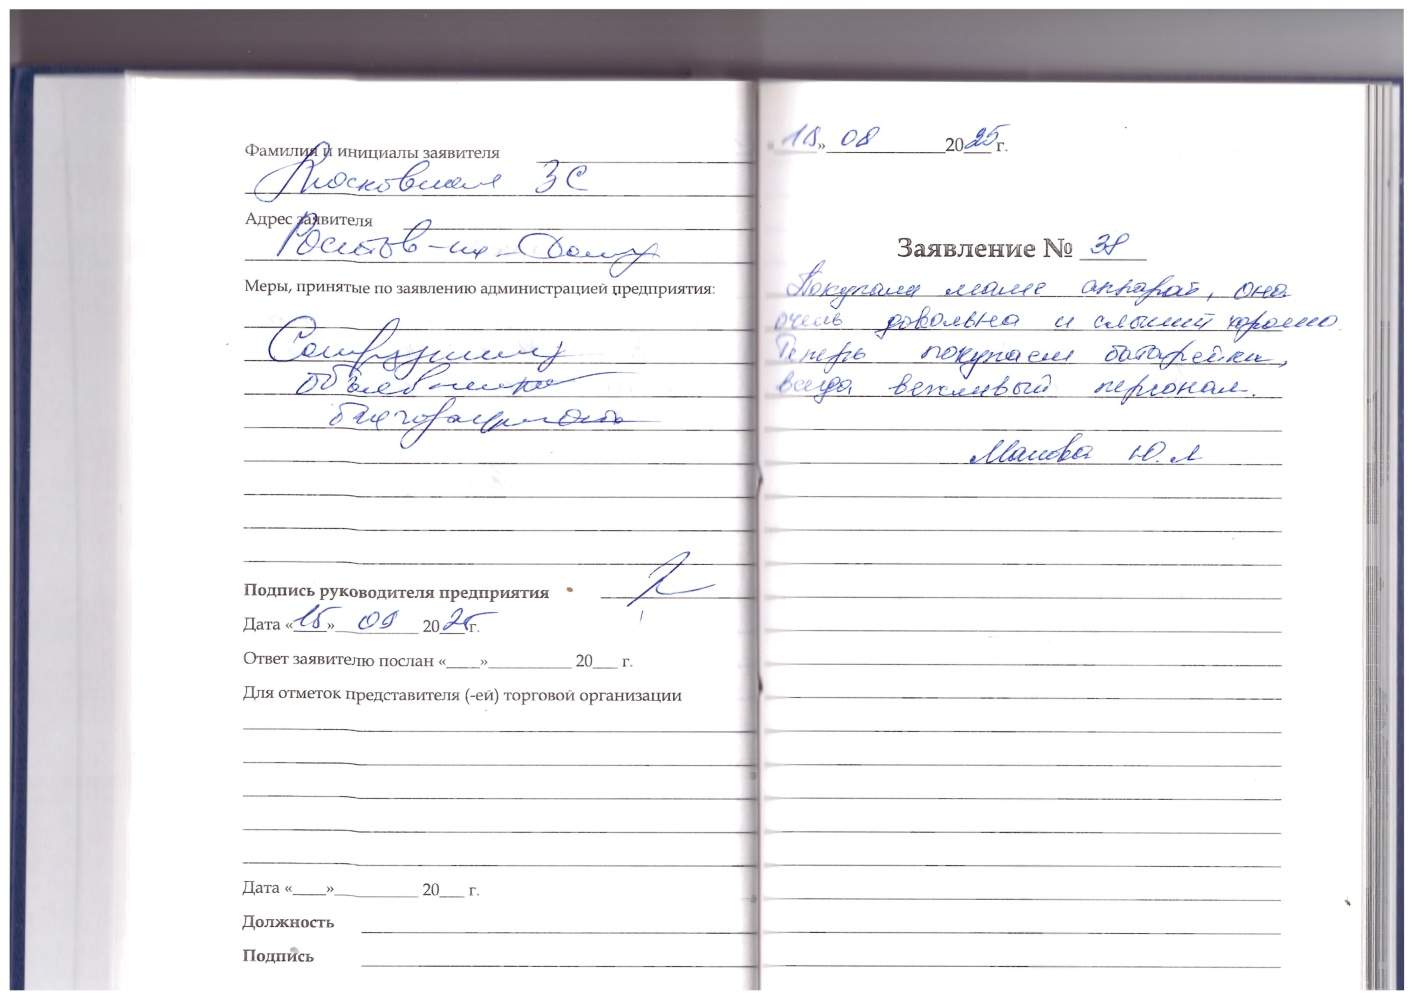 Фамилия и инициалы заявителя
ЗС
Адрес заявителя
Ростов-на-Дону
Меры, принятые по заявлению администрацией предприятия:
Сотруднику
объявлена
благодарность
Подпись руководителя предприятия
Дата «15» 09 2025 г.
Ответ заявителю послан «____»__________ 20___ г.
Для отметок представителя (-ей) торговой организации
Дата «____»__________ 20___ г.
Должность
Подпись
» 08 2025 г.
Заявление № 38
Покупали маме аппарат, она
очень довольна и слышит хорошо.
Теперь покупаем батарейки,
всегда вежливый персонал.
Ю.Л